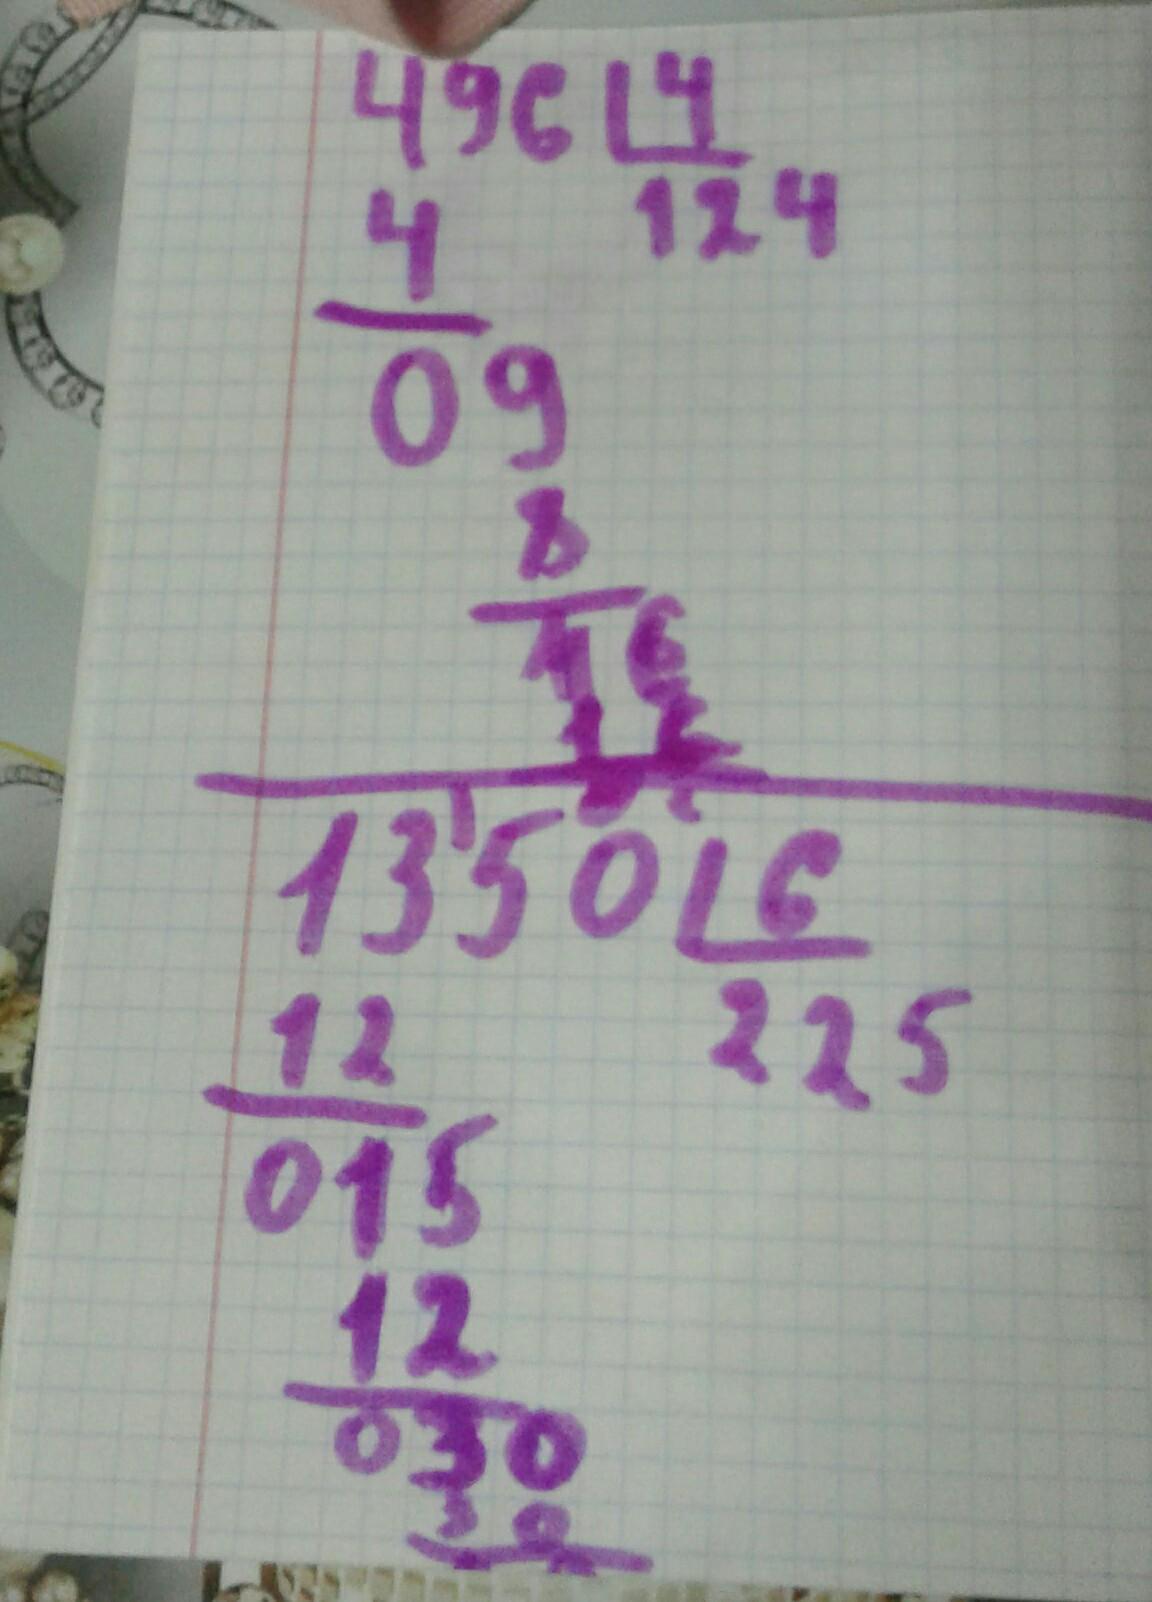 496 4
4 124
09
8
16
1350 6
12 225
015
12
030
30